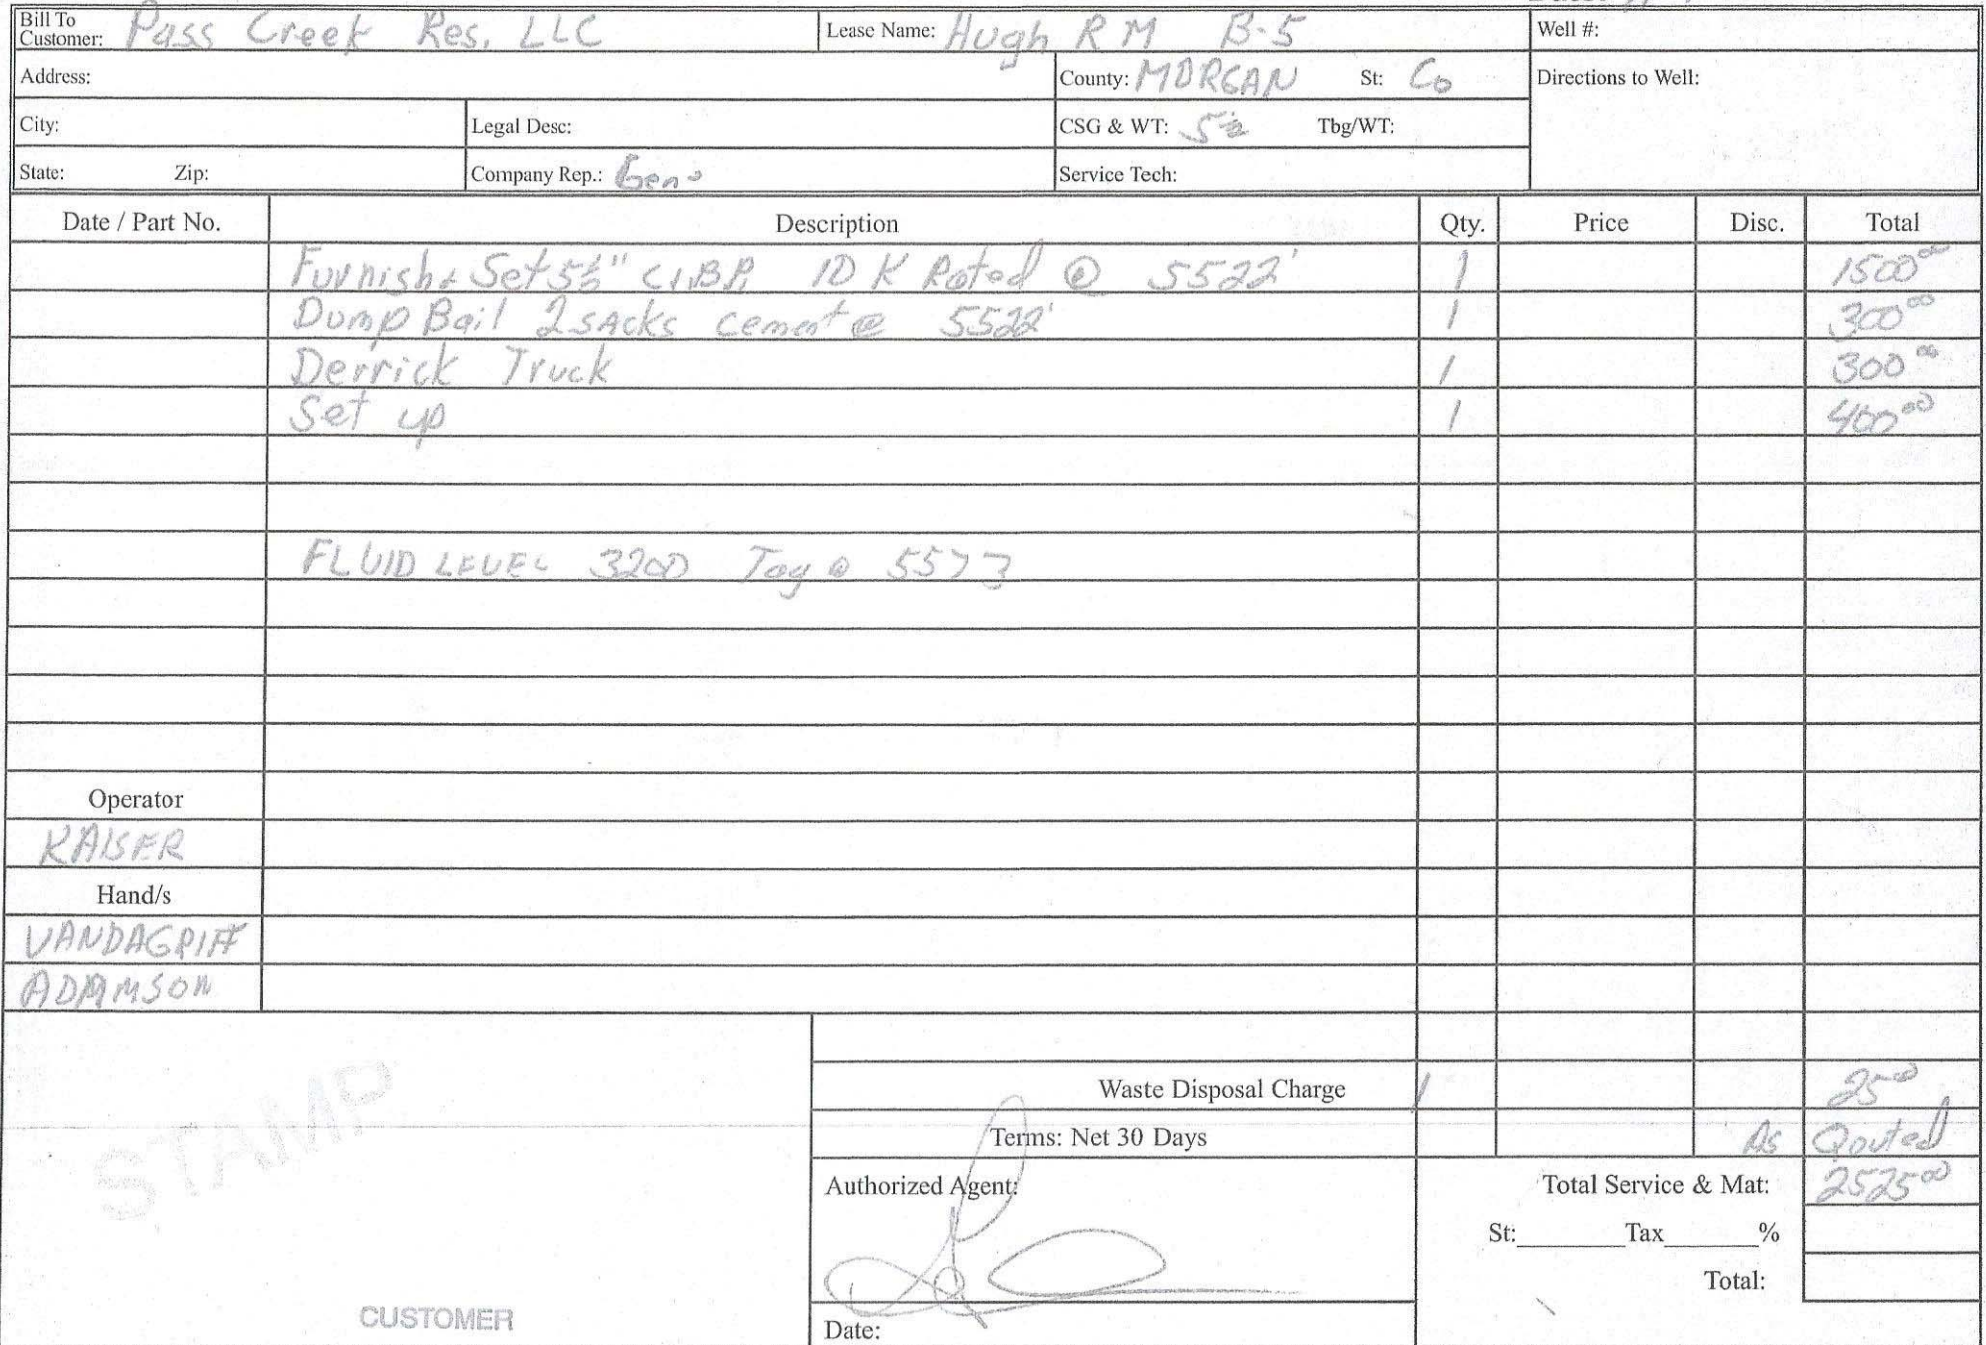 Bill To
Customer: Pass Creek Res. LLC Lease Name: Hugh RM B-5 Well #:
Address: County: MORGAN St: Co Directions to Well:
City: Legal Desc: CSG & WT: Tbg/WT:
State: Zip: Company Rep.: Geno Service Tech:
Date / Part No. Description Qty. Price Disc. Total
Furnish & Set 5½" C.I.B.P. 10 K Rated @ 5522' 1 1500⁰⁰
Dump Bail 2 SAcks cement @ 5522' 1 300⁰⁰
Derrick Truck 1 300⁰⁰
Set up 1 400⁰⁰
FLUID LEVEL 3200 Tag @ 5573
Operator
KAISER
Hand/s
VANDAGRIFF
ADAMSON
Waste Disposal Charge 1 25⁰⁰
Terms: Net 30 Days As Qouted
STAMP
Authorized Agent: Total Service & Mat: 2525⁰⁰
St:________Tax_______%
Total:
CUSTOMER
Date: